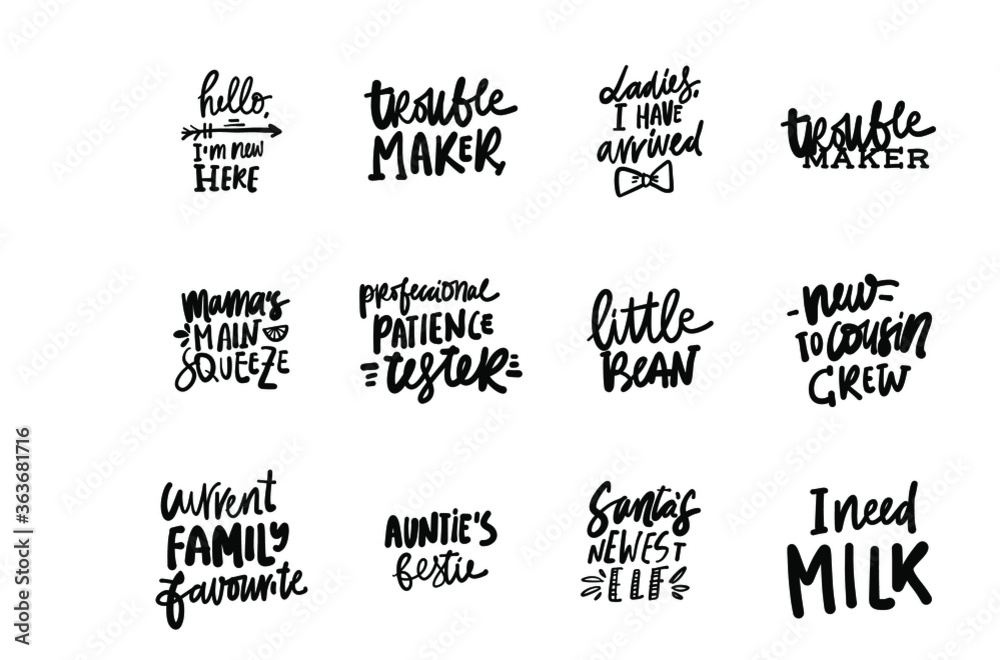 hello,
I'm new
HERE
trouble
MAKER,
Ladies,
I HAVE
arrived
trouble
MAKER
mama's
MAIN
SQUEEZE
proffecional
PATIENCE
tester
little
BEAN
new
TO cousin
CREW
current
FAMILY
favourite
AUNTIE'S
bestie
Santa's
NEWEST
ELF
I need
MILK
Adobe Stock | #363681716